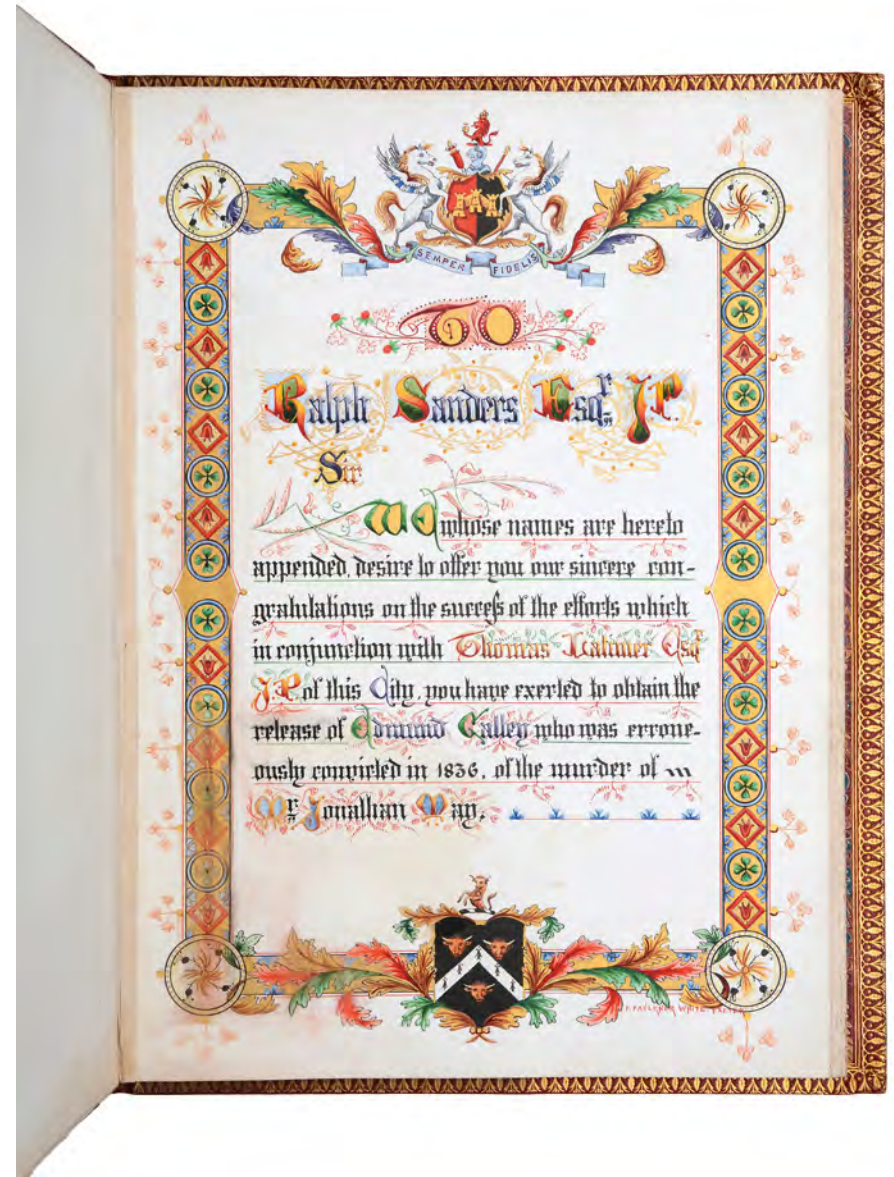 SEMPER FIDELIS
TO
Ralph Sanders Esqr. J.P.
Sir
We whose names are hereto
appended, desire to offer you our sincere con-
gratulations on the success of the efforts which
in conjunction with Thomas Latimer Esqr
J.P. of this City, you have exerted to obtain the
release of Edmund Galley who was errone-
ously convicted in 1836, of the murder of
Mr. Jonathan May.
FAULKNER WHITE EXETER